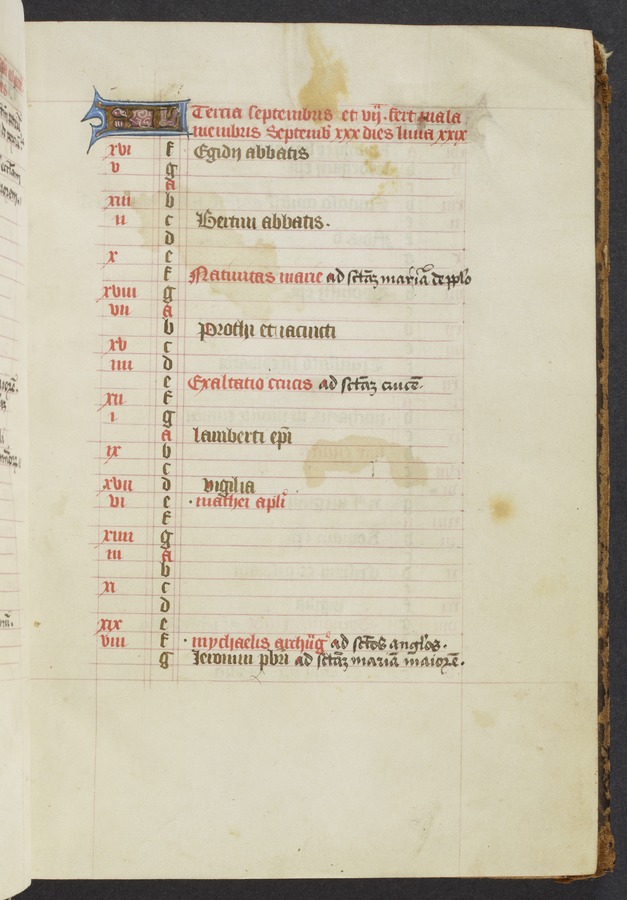 KL Tercia septembris et vij. fert mala
membris Septemb xxx dies luna xxix
xvi f Egidij abbatis
v g
A
xiii b
ii c Bertini abbatis.
d
x e
f Natiuitas marie ad sctāȝ mariā de pplo
xviii g
vii A
b Prothi et iacincti
xv c
iiii d
e Exaltatio crucis ad sctāȝ crucē.
xii f
i g
A lamberti epi
ix b
c
xvii d vigilia
vi e mathei apli
f
xiiii g
iii A
b
xi c
d
xix e
viii f mychaelis archāg ad sctōs anglos.
g Jeronimi pbri ad sctāȝ mariā maiorē.